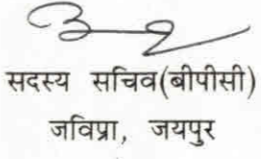 सदस्य सचिव(बीपीसी)
जविप्रा, जयपुर